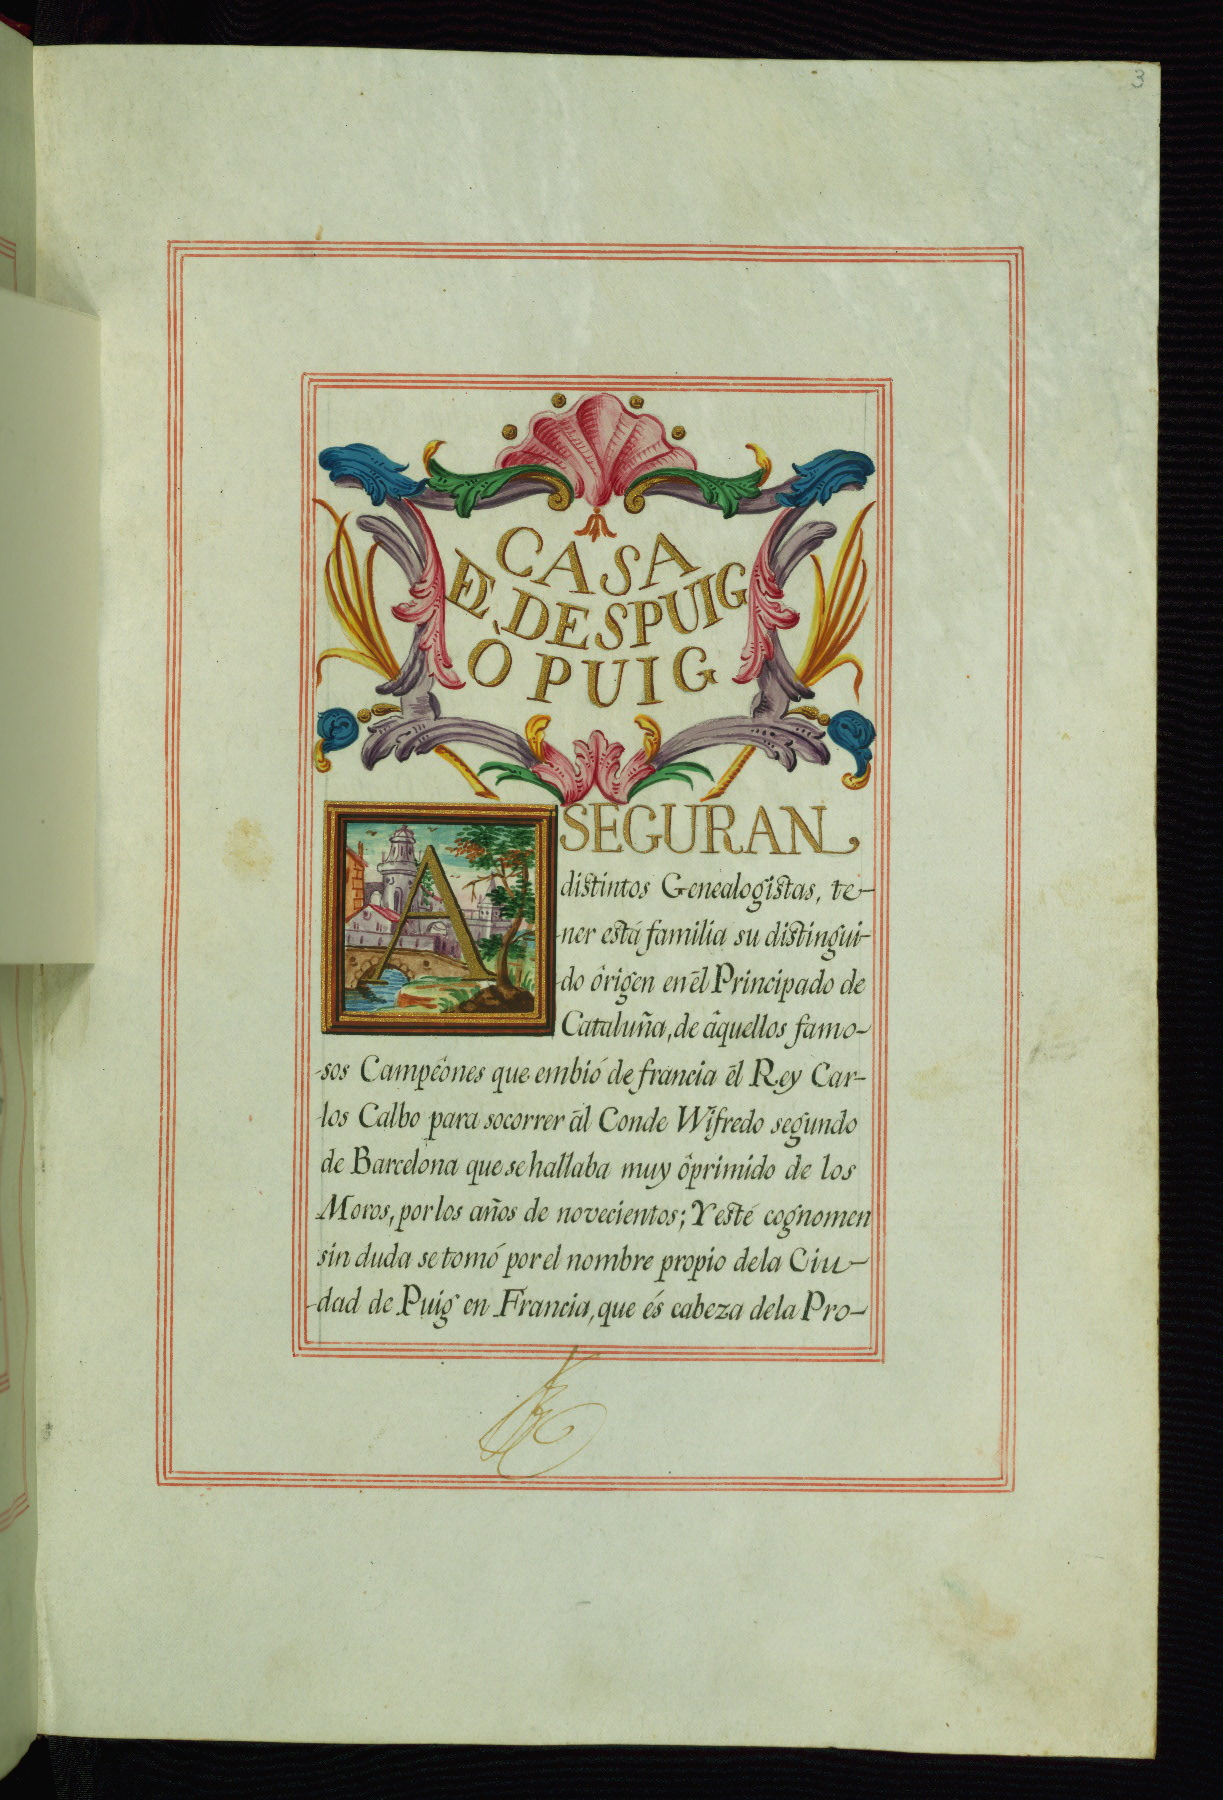 3
CASA
DE DESPUIG
Ò PUIG
ASEGURAN
distintos Genealogistas, te-
-ner está familia su distingui-
-do ôrigen en ēl Principado de
Cataluña, de âquellos famo-
-sos Campêônes que embió de francia ēl Rey Car-
-los Calbo para socorrer āl Conde Wifredo segundo
de Barcelona que se hallaba muy ôprimido de los
Moros, por los años de novecientos; Y esté cognomen
sin duda se tomó por el nombre propio dela Ciu-
-dad de Puig en Francia, que és cabeza dela Pro-